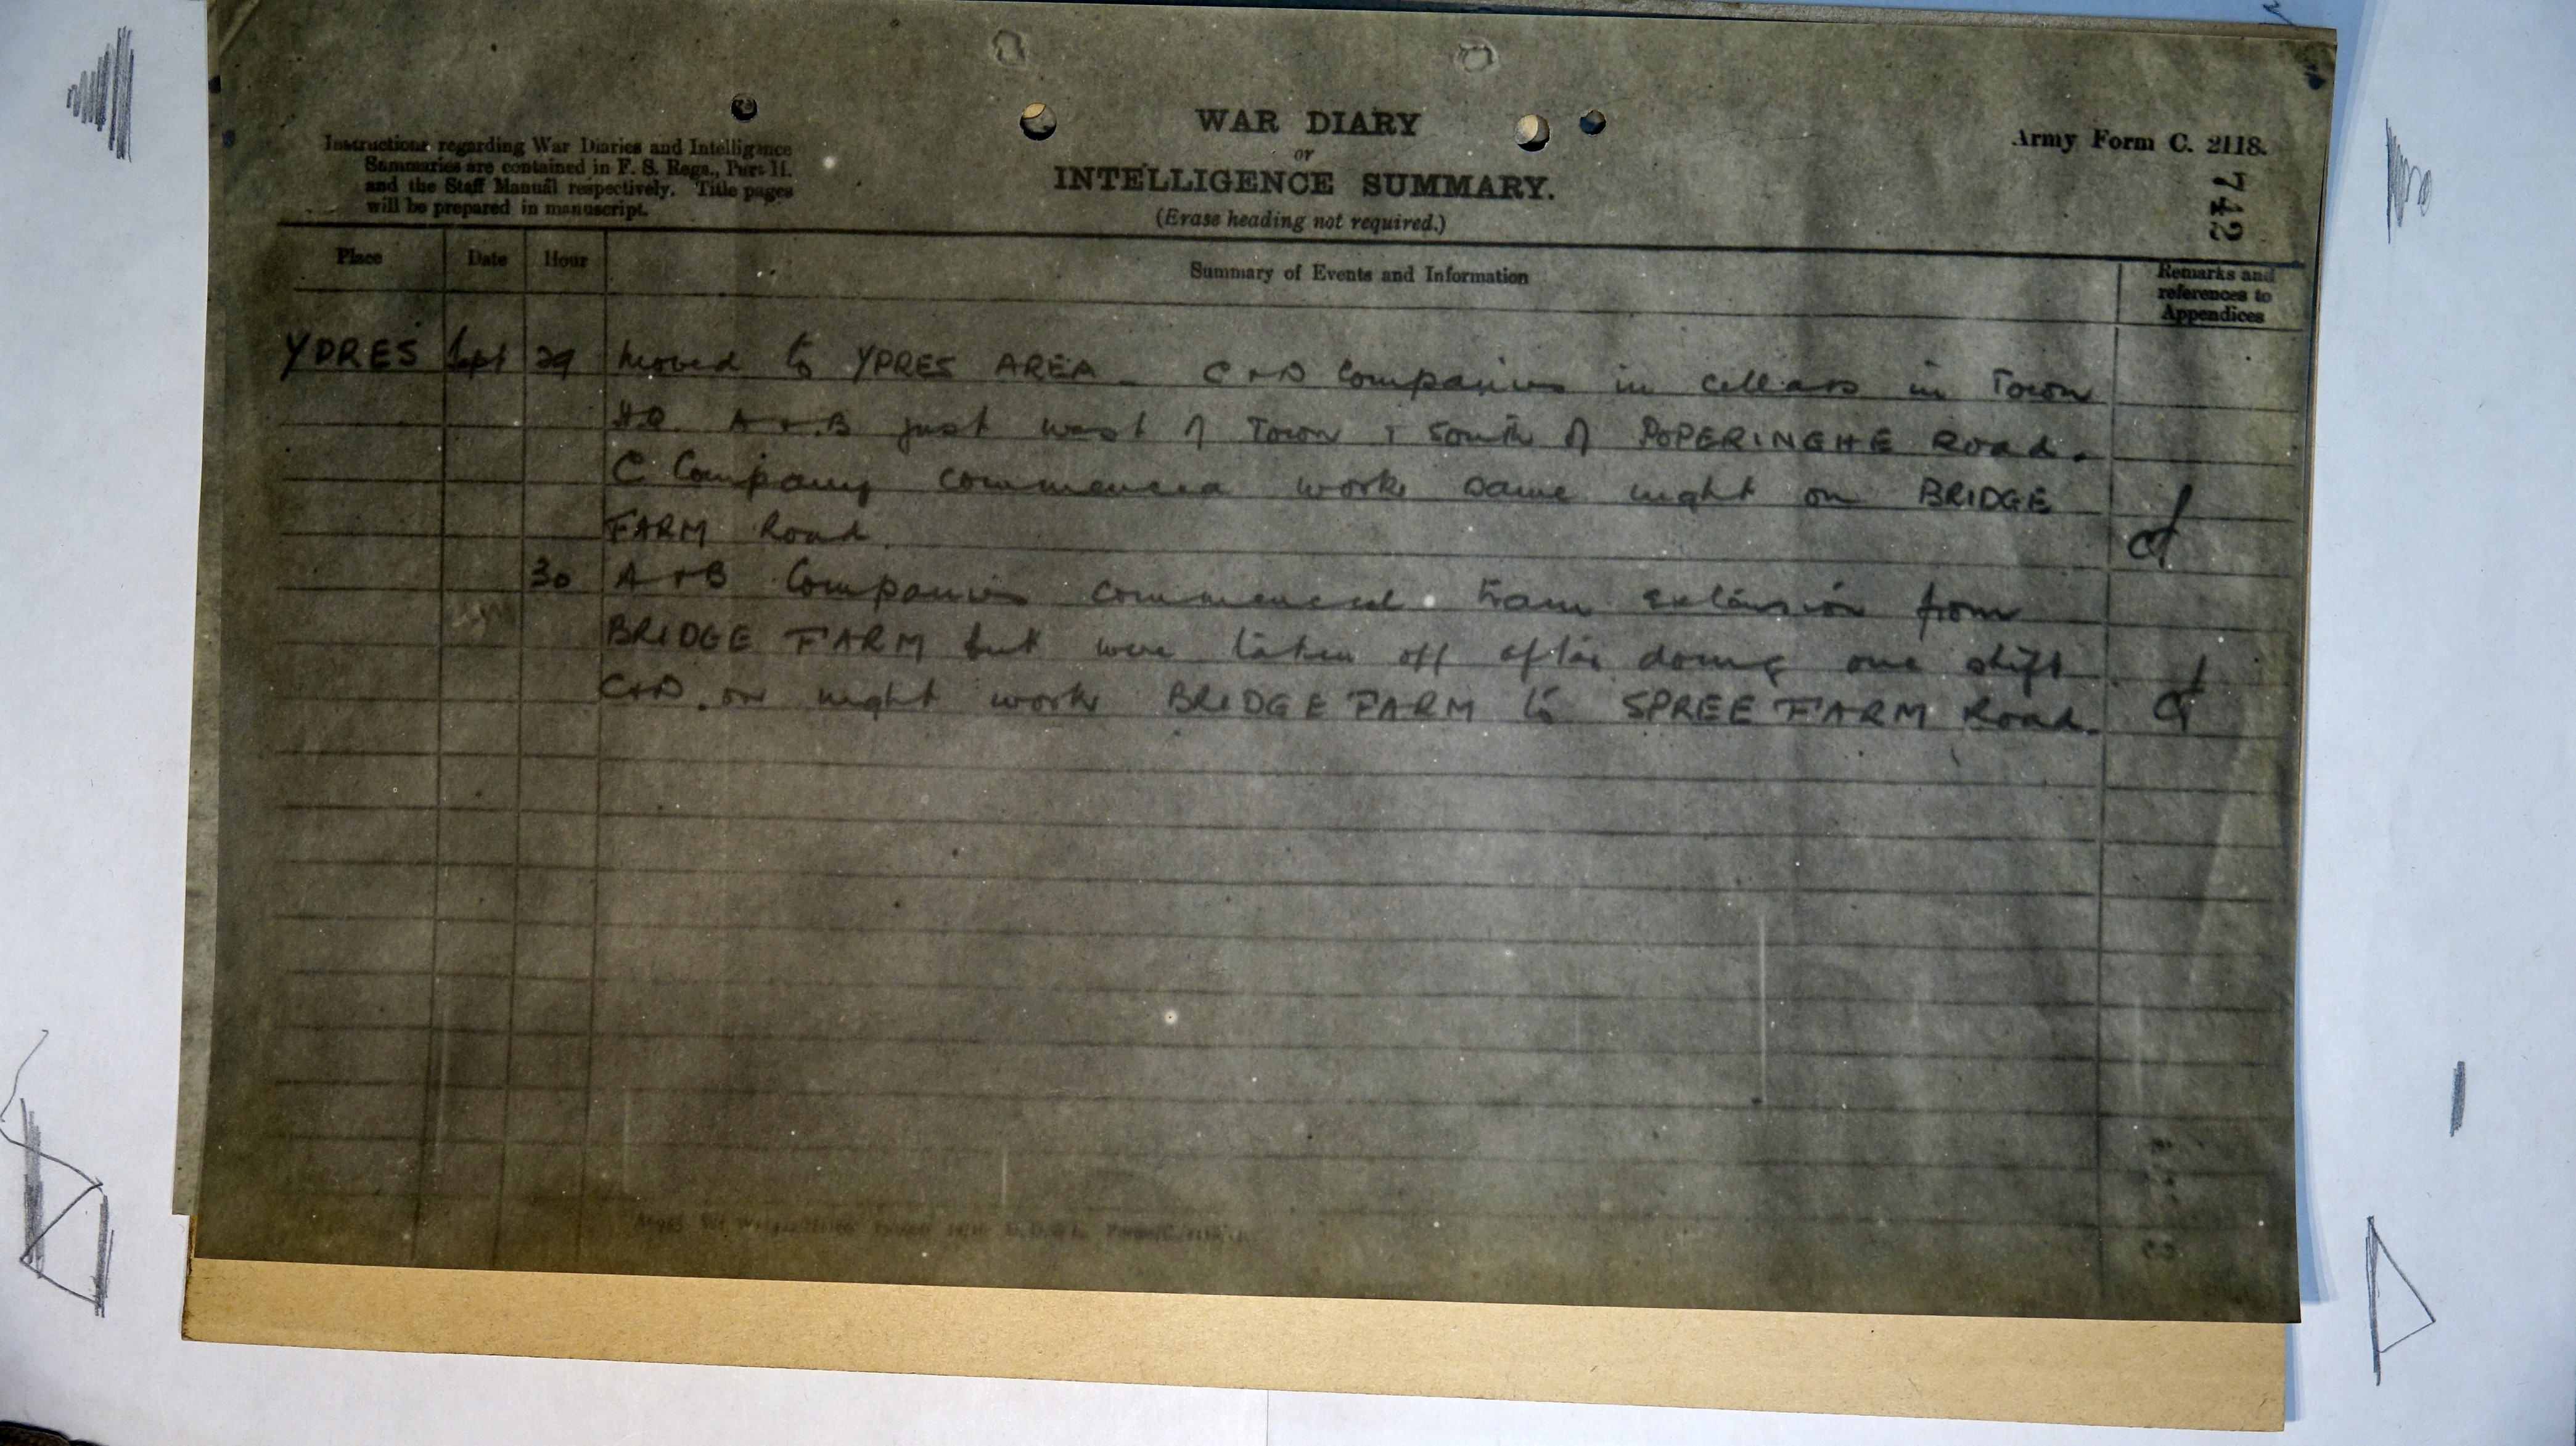 Instructions regarding War Diaries and Intelligence
Summaries are contained in F. S. Regs., Part II.
and the Staff Manual respectively. Title pages
will be prepared in manuscript.
WAR DIARY
or
INTELLIGENCE SUMMARY.
(Erase heading not required.)
Army Form C. 2118.
742
Place Date Hour Summary of Events and Information Remarks and
references to
Appendices
YPRES Sept 29 Moved to YPRES AREA - C + D Companies in cellars in Town
H.Q. A + B just west of Town & South of POPERINGHE Road.
C Company commenced work same night on BRIDGE
FARM Road.
30 A + B Companies commenced tram extension from
BRIDGE FARM but were taken off after doing one shift
C+D. on night work BRIDGE FARM to SPREE FARM Road.